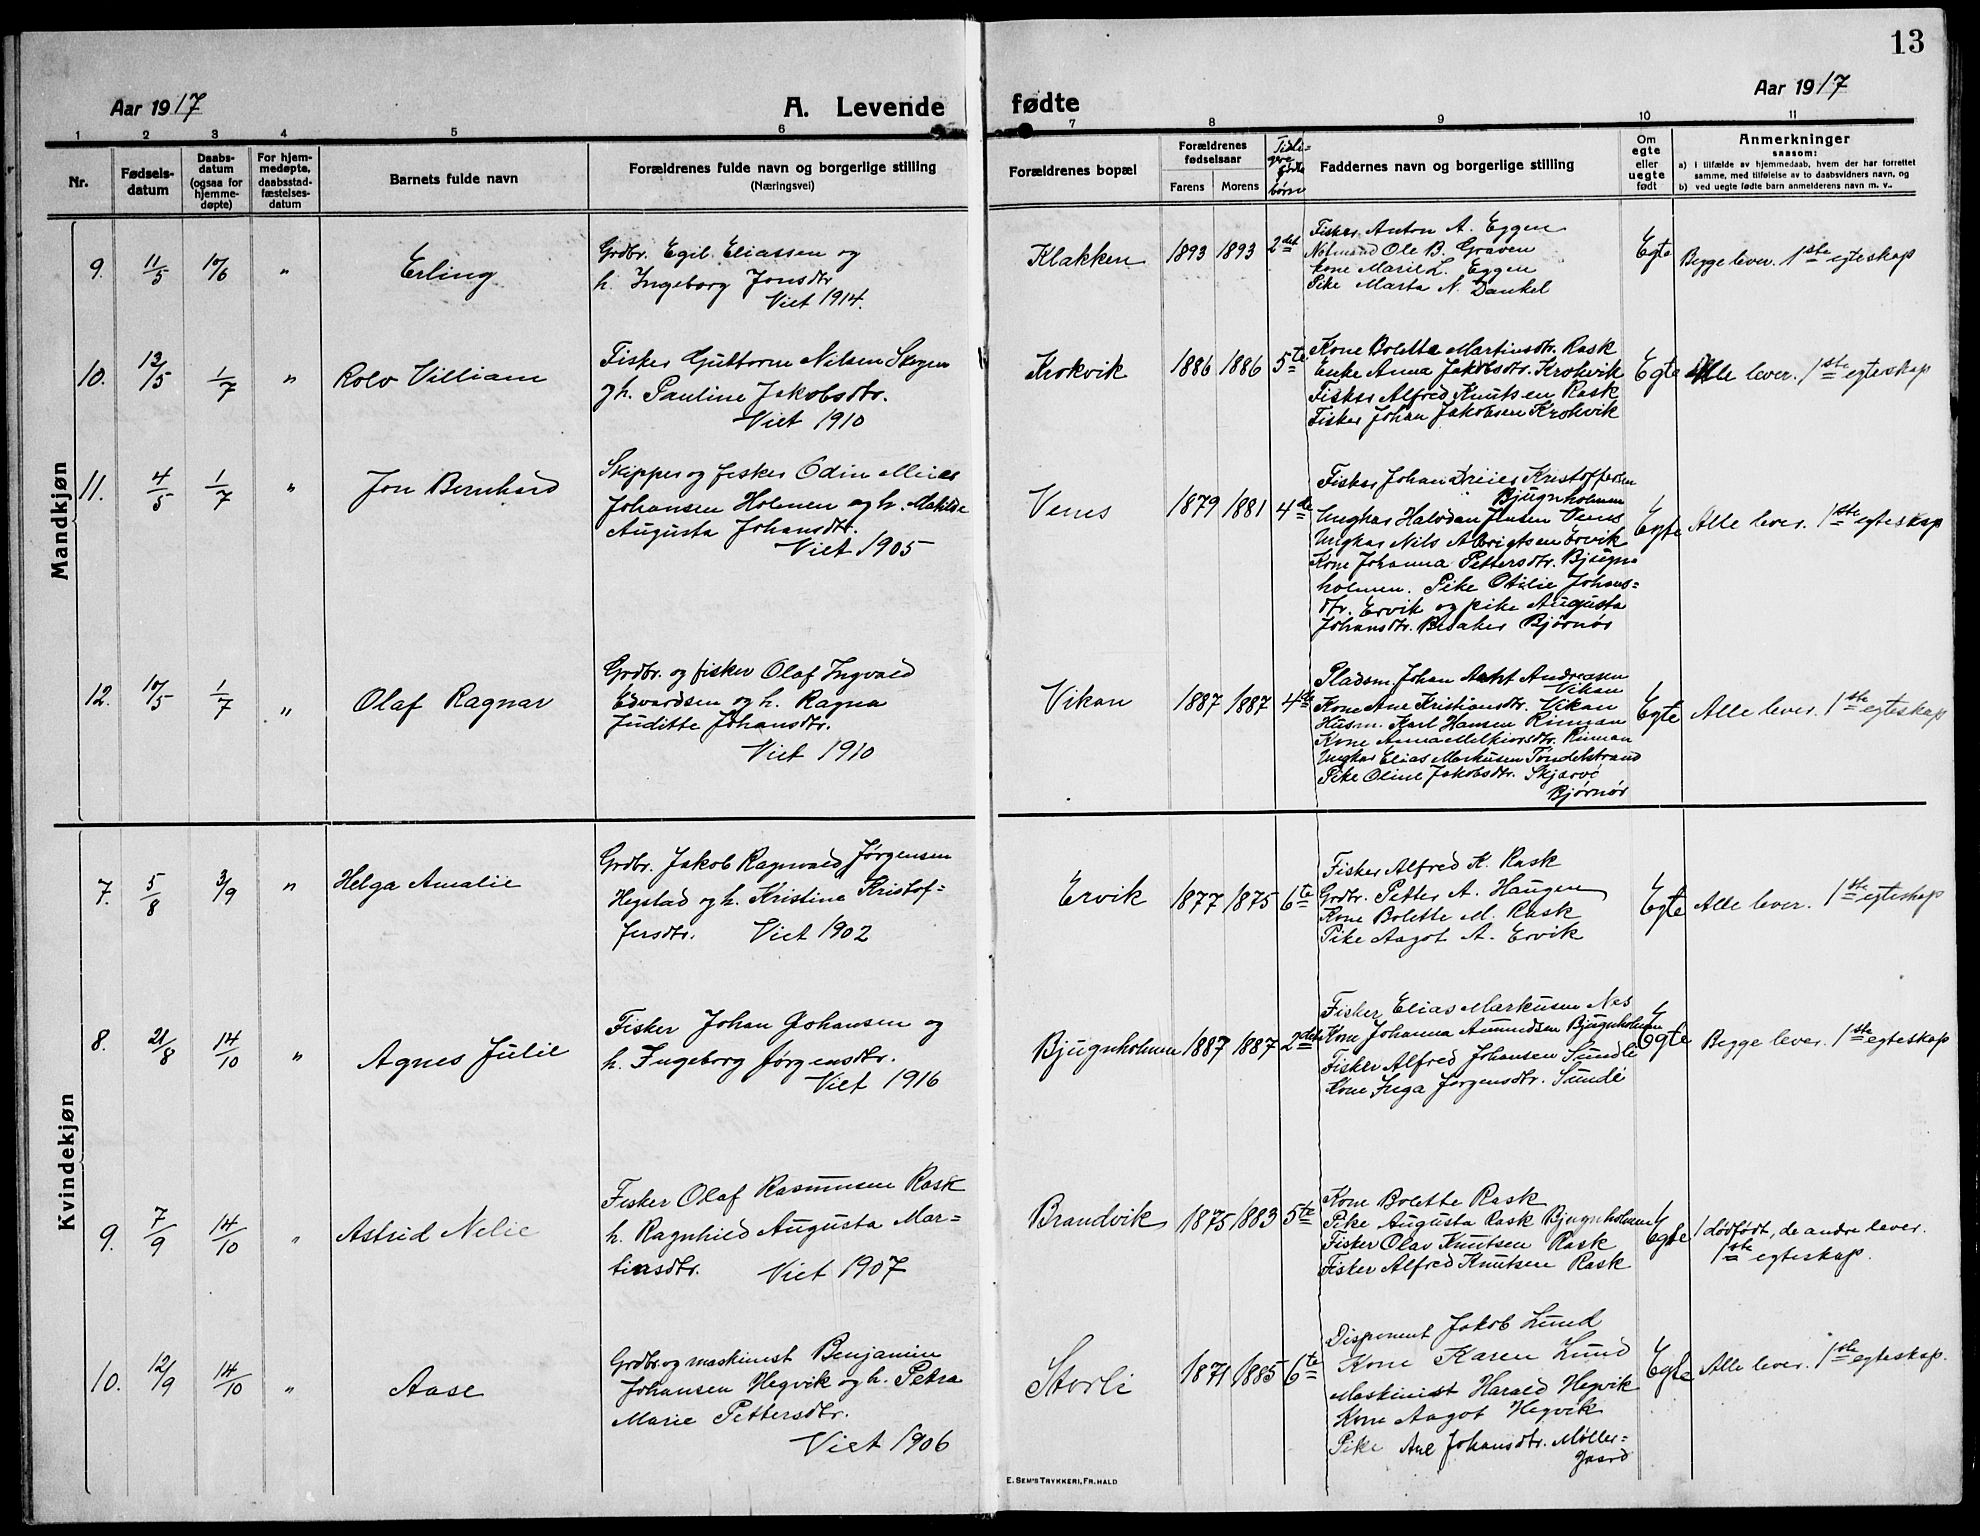 13
Aar 1917
A. Levende fødte
Aar 1917
1 2 3 4 5 6 7 8 9 10 11
Nr.
Fødsels-
datum
Daabs-
datum
(ogsaa for
hjemme-
døpte)
For hjem-
medøpte,
daabsstad-
fæstelses-
datum
Barnets fulde navn
Forældrenes fulde navn og borgerlige stilling
(Næringsvei)
Forældrenes bopæl
Forældrenes
fødselsaar
Farens Morens
Tidli-
gere
fødte
børn
Faddernes navn og borgerlige stilling
Om
egte
eller
uegte
født
Anmerkninger
saasom:
a) i tilfælde av hjemmedaab, hvem der har forrettet
samme, med tilføielse av to daabsvidners navn, og
b) ved uegte fødte barn anmelderens navn m. v..
Mandkjøn
9. 11/5 10/6 " Erling
Grdbr. Egil Eliassen og
h. Ingeborg Jonsdtr.
Viet 1914.
Klakken 1893 1893 2det
Fisker Anton A. Eggen
Notmand Ole B. Graven
Kone Marie L. Eggen
Pike Marta N. Dankel
Egte Begge lever. 1ste egteskap
10. 12/5 1/7 " Rolv Villiam
Fisker Guttorm Nilsen Skogen
og h. Pauline Jakobsdtr.
Viet 1910
Krokvik 1886 1886 5te
Kone Bolette Martinsdtr. Rask
Enke Anna Jakobsdtr. Krokvik
Fisker Alfred Knutsen Rask
Fisker Johan Jakobsen Krokvik
Egte Alle lever. 1ste egteskap
11. 4/5 1/7 " Jon Bernhard
Skipper og fisker Odin Meier
Johansen Holmen og h. Matilde
Augusta Johansdtr.
Viet 1905
Venes 1879 1881 4de
Fisker Johan Dreier Kristoffersen
Bjugnholmen
Ungkar Halvdan Jensen Venes
Ungkar Nils Albrigtsen Ervik
Kone Johanna Pettersdtr. Bjugn-
holmen. Pike Otilie Johans=
dtr. Ervik og pike Augusta
Johansdtr. Besaker Bjørnør
Egte Alle lever. 1ste egteskap
12. 10/5 1/7 " Olaf Ragnar
Grdbr. og fisker Olaf Ingvald
Edvardsen og h. Ragna
Juditte Johansdtr.
Viet 1910
Vikan 1887 1887 4de
Pladsm. Johan Andreasen
Vikan
Kone Ane Kristiansdtr. Vikan
Husm. Karl Hansen Rinnan
Kone Anna Melkiorsdtr. Rinnan
Ungkar Elias Markusen Tøndelstrand
Pike Oline Jakobsdtr. Skjærvø
Bjørnør
Egte Alle lever. 1ste egteskap
Kvindekjøn
7. 5/8 3/9 " Helga Amalie
Grdbr. Jakob Ragnvald Jørgensen
Hegstad og h. Kristine Kristof=
fersdtr. Viet 1902
Ervik 1877 1875 6te
Fisker Alfred K. Rask
Grdbr. Petter A. Haugen
Kone Bolette M. Rask
Pike Aagot A. Ervik
Egte Alle lever. 1ste egteskap
8. 21/8 14/10 " Agnes Julie
Fisker Johan Johansen og
h. Ingeborg Jørgensdtr.
Viet 1916
Bjugnholmen 1887 1887 2det
Fisker Elias Markusen Nes
Kone Johanna Aumundsen Bjugnholmen
Fisker Alfred Johansen Sunde
Kone Inga Jørgensdtr. Sunde
Egte Begge lever. 1ste egteskap
9. 7/9 14/10 " Astrid Nelie
Fisker Olaf Rasmusen Rask
h. Ragnhild Augusta Mar=
tinsdtr. Viet 1907
Brandvik 1875 1883 5te
Kone Bolette Rask
Pike Augusta Rask Bjugnholmen
Fisker Olav Knutsen Rask
Fisker Alfred Knutsen Rask
Egte 1 dødfødt, de andre lever.
1ste egteskap.
10. 12/9 14/10 " Aase
Grdbr. og maskinist Benjamin
Johansen Hegvik og h. Petra
Marie Pettersdtr.
Viet 1906
Storli 1871 1885 6te
Disponent Jakob Lund
Kone Karen Lund
Maskinist Harald Hegvik
Kone Aagot Hegvik
Pike Ane Johansdtr. Møller=
gaard
Egte Alle lever. 1ste egteskap.
E. SEM'S TRYKKERI, FR.HALD